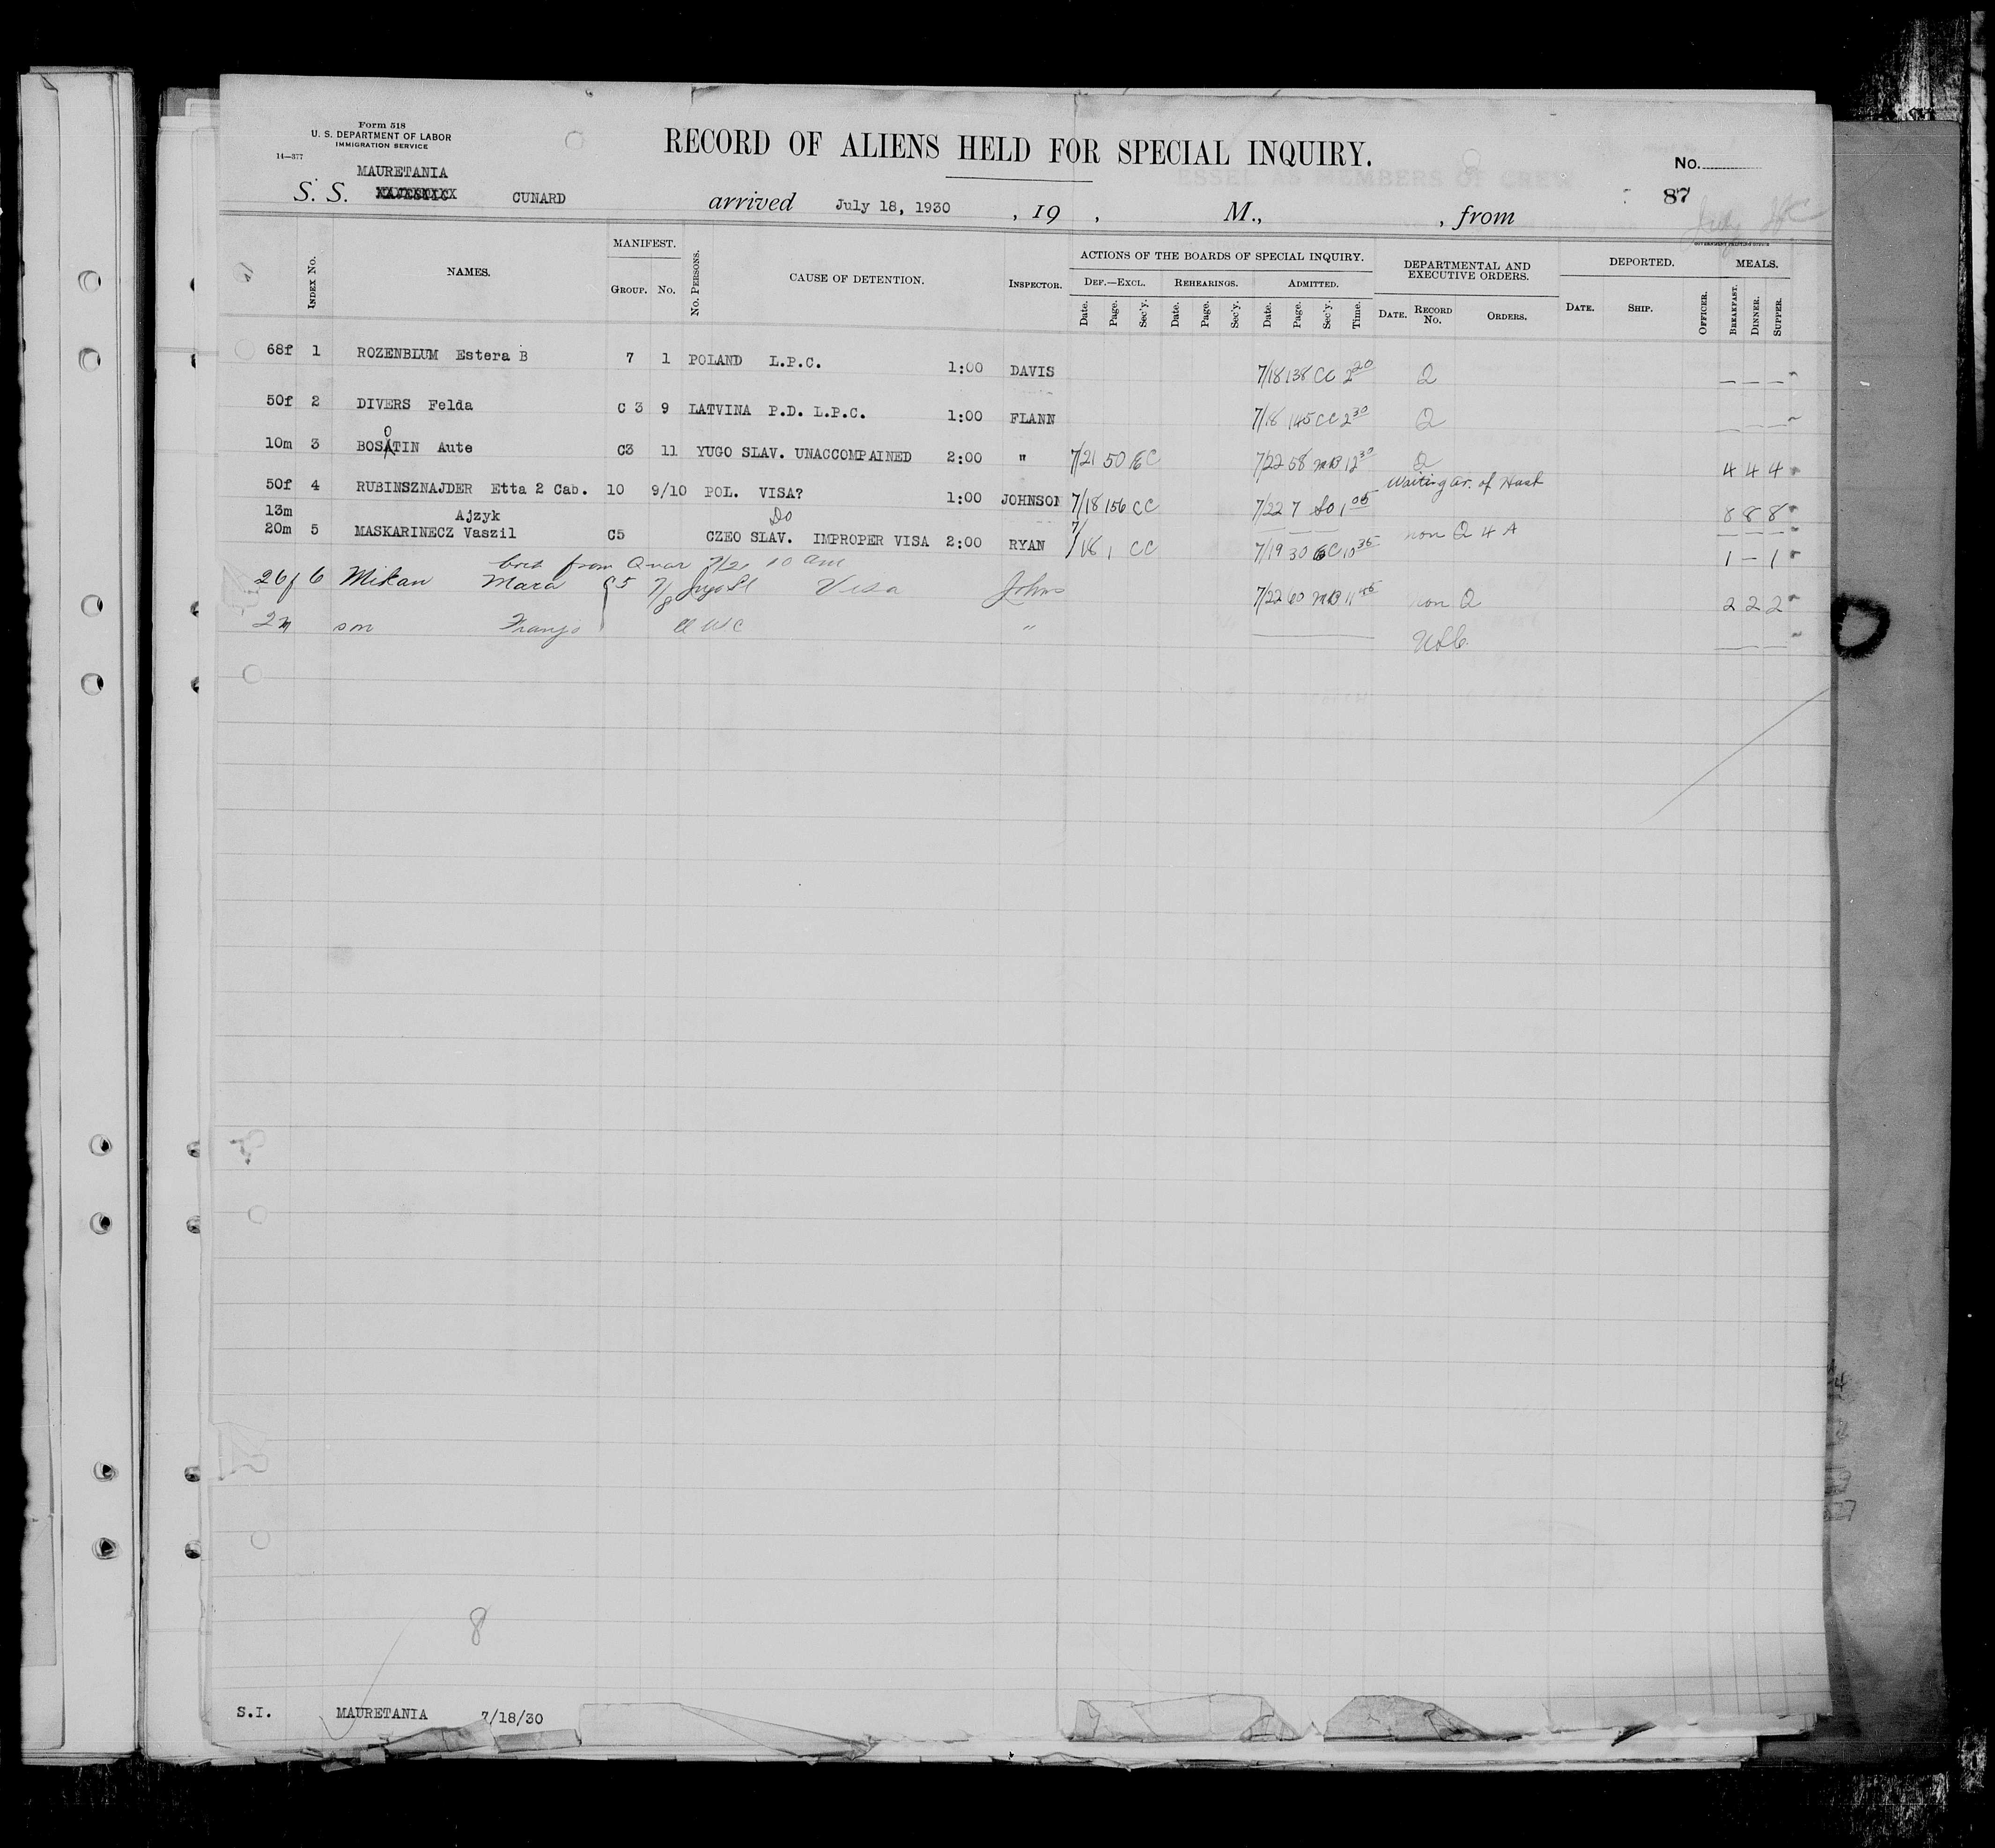 Form 518
U. S. DEPARTMENT OF LABOR
IMMIGRATION SERVICE
14—377
RECORD OF ALIENS HELD FOR SPECIAL INQUIRY.
No.
87
MAURETANIA
S. S. CUNARD arrived July 18, 1930 , 19 , M., , from
INDEX No. NAMES. MANIFEST. GROUP. No. No. PERSONS. CAUSE OF DETENTION. INSPECTOR. ACTIONS OF THE BOARDS OF SPECIAL INQUIRY. DEF.—EXCL. Date. Page. Sec'y. REHEARINGS. Date. Page. Sec'y. ADMITTED. Date. Page. Sec'y. Time. DEPARTMENTAL AND EXECUTIVE ORDERS. DATE. RECORD No. ORDERS. DEPORTED. DATE. SHIP. OFFICER. MEALS. BREAKFAST. DINNER. SUPPER.
68f 1 ROZENBLUM Estera B 7 1 POLAND L.P.C. 1:00 DAVIS 7/18 138 CC 2 20 Q — — —
50f 2 DIVERS Felda C 3 9 LATVINA P.D. L.P.C. 1:00 FLANN 7/18 145 CC 2 30 Q — — —
10m 3 BOSOTIN Aute C3 11 YUGO SLAV. UNACCOMPAINED 2:00 " 7/21 50 EC 7/22 58 MB 12 30 Q 4 4 4
50f 4 RUBINSZNAJDER Etta 2 Cab. 10 9/10 POL. VISA? 1:00 JOHNSON 7/18 156 CC 7/22 7 1 05 Waiting ar. of Husb 8 8 8
13m Ajzyk Do — — —
20m 5 MASKARINECZ Vaszil C5 CZEO SLAV. IMPROPER VISA 2:00 RYAN 7/18 1 CC 7/19 30 EC 10 35 non Q 4 A 1 — 1
from Quar 10 am
26f 6 Mikan Mara C5 7/8 Jugo Sl Visa Johns 7/22 60 MB 11 45 non Q 2 2 2
2m son Franjo a w c " — — —
8
S.I. MAURETANIA 7/18/30